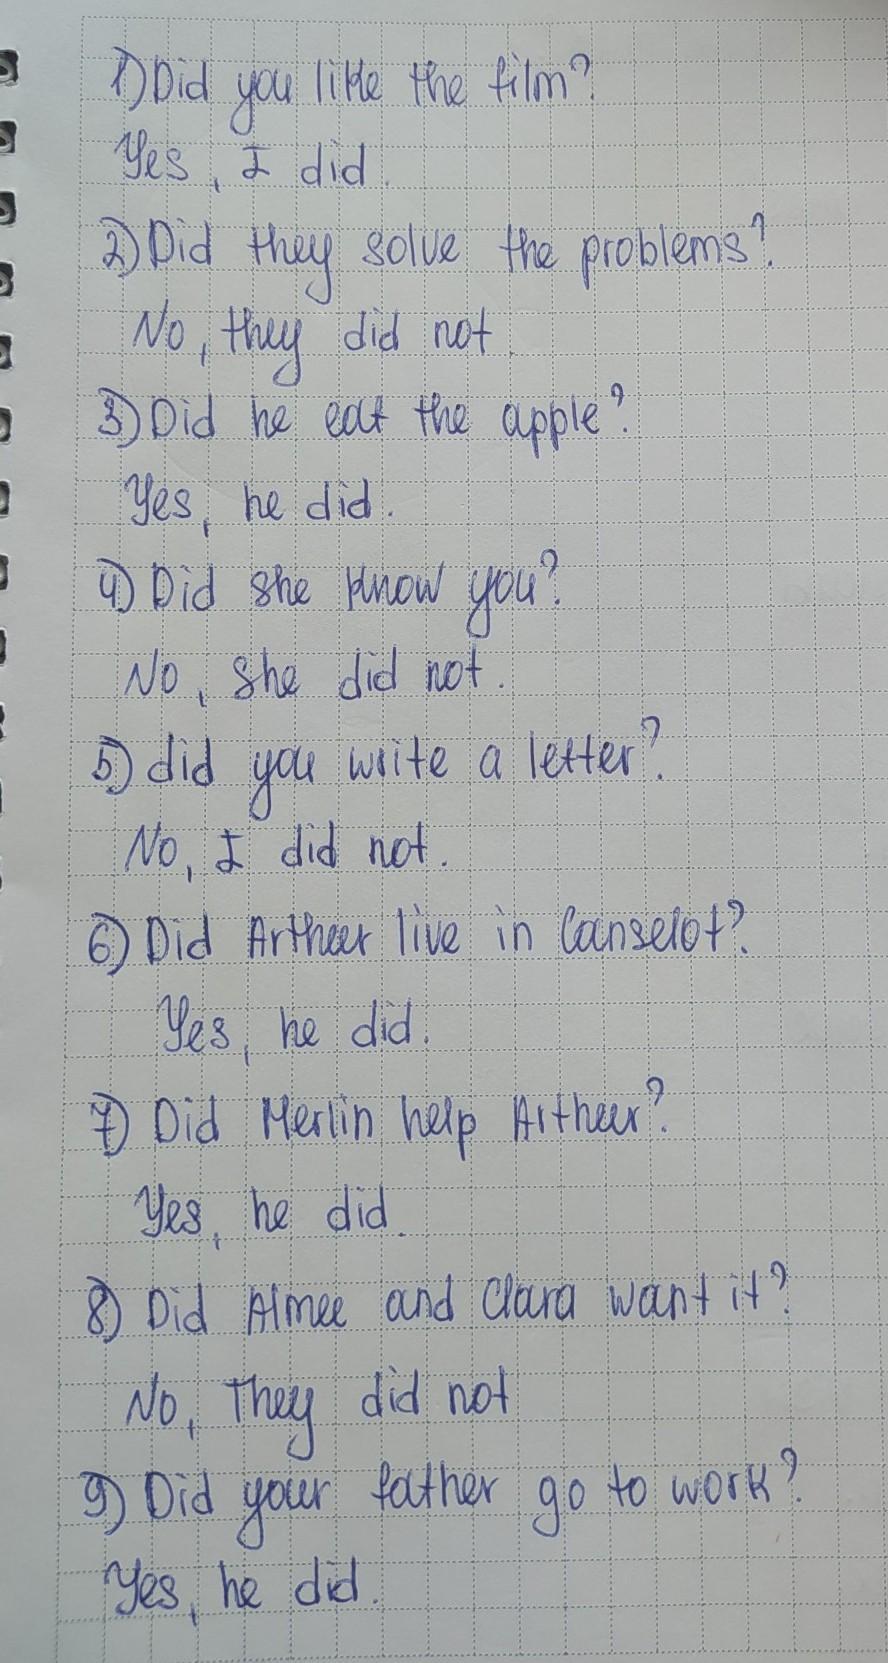 1) Did you like the film?
Yes, I did.
2) Did they solve the problems?
No, they did not.
3) Did he eat the apple?
Yes, he did.
4) Did she know you?
No, she did not.
5) did you write a letter?
No, I did not.
6) Did Arthur live in Canselot?
Yes, he did.
7) Did Merlin help Arthur?
Yes, he did.
8) Did Almee and Clara want it?
No, They did not
9) Did your father go to work?
Yes, he did.